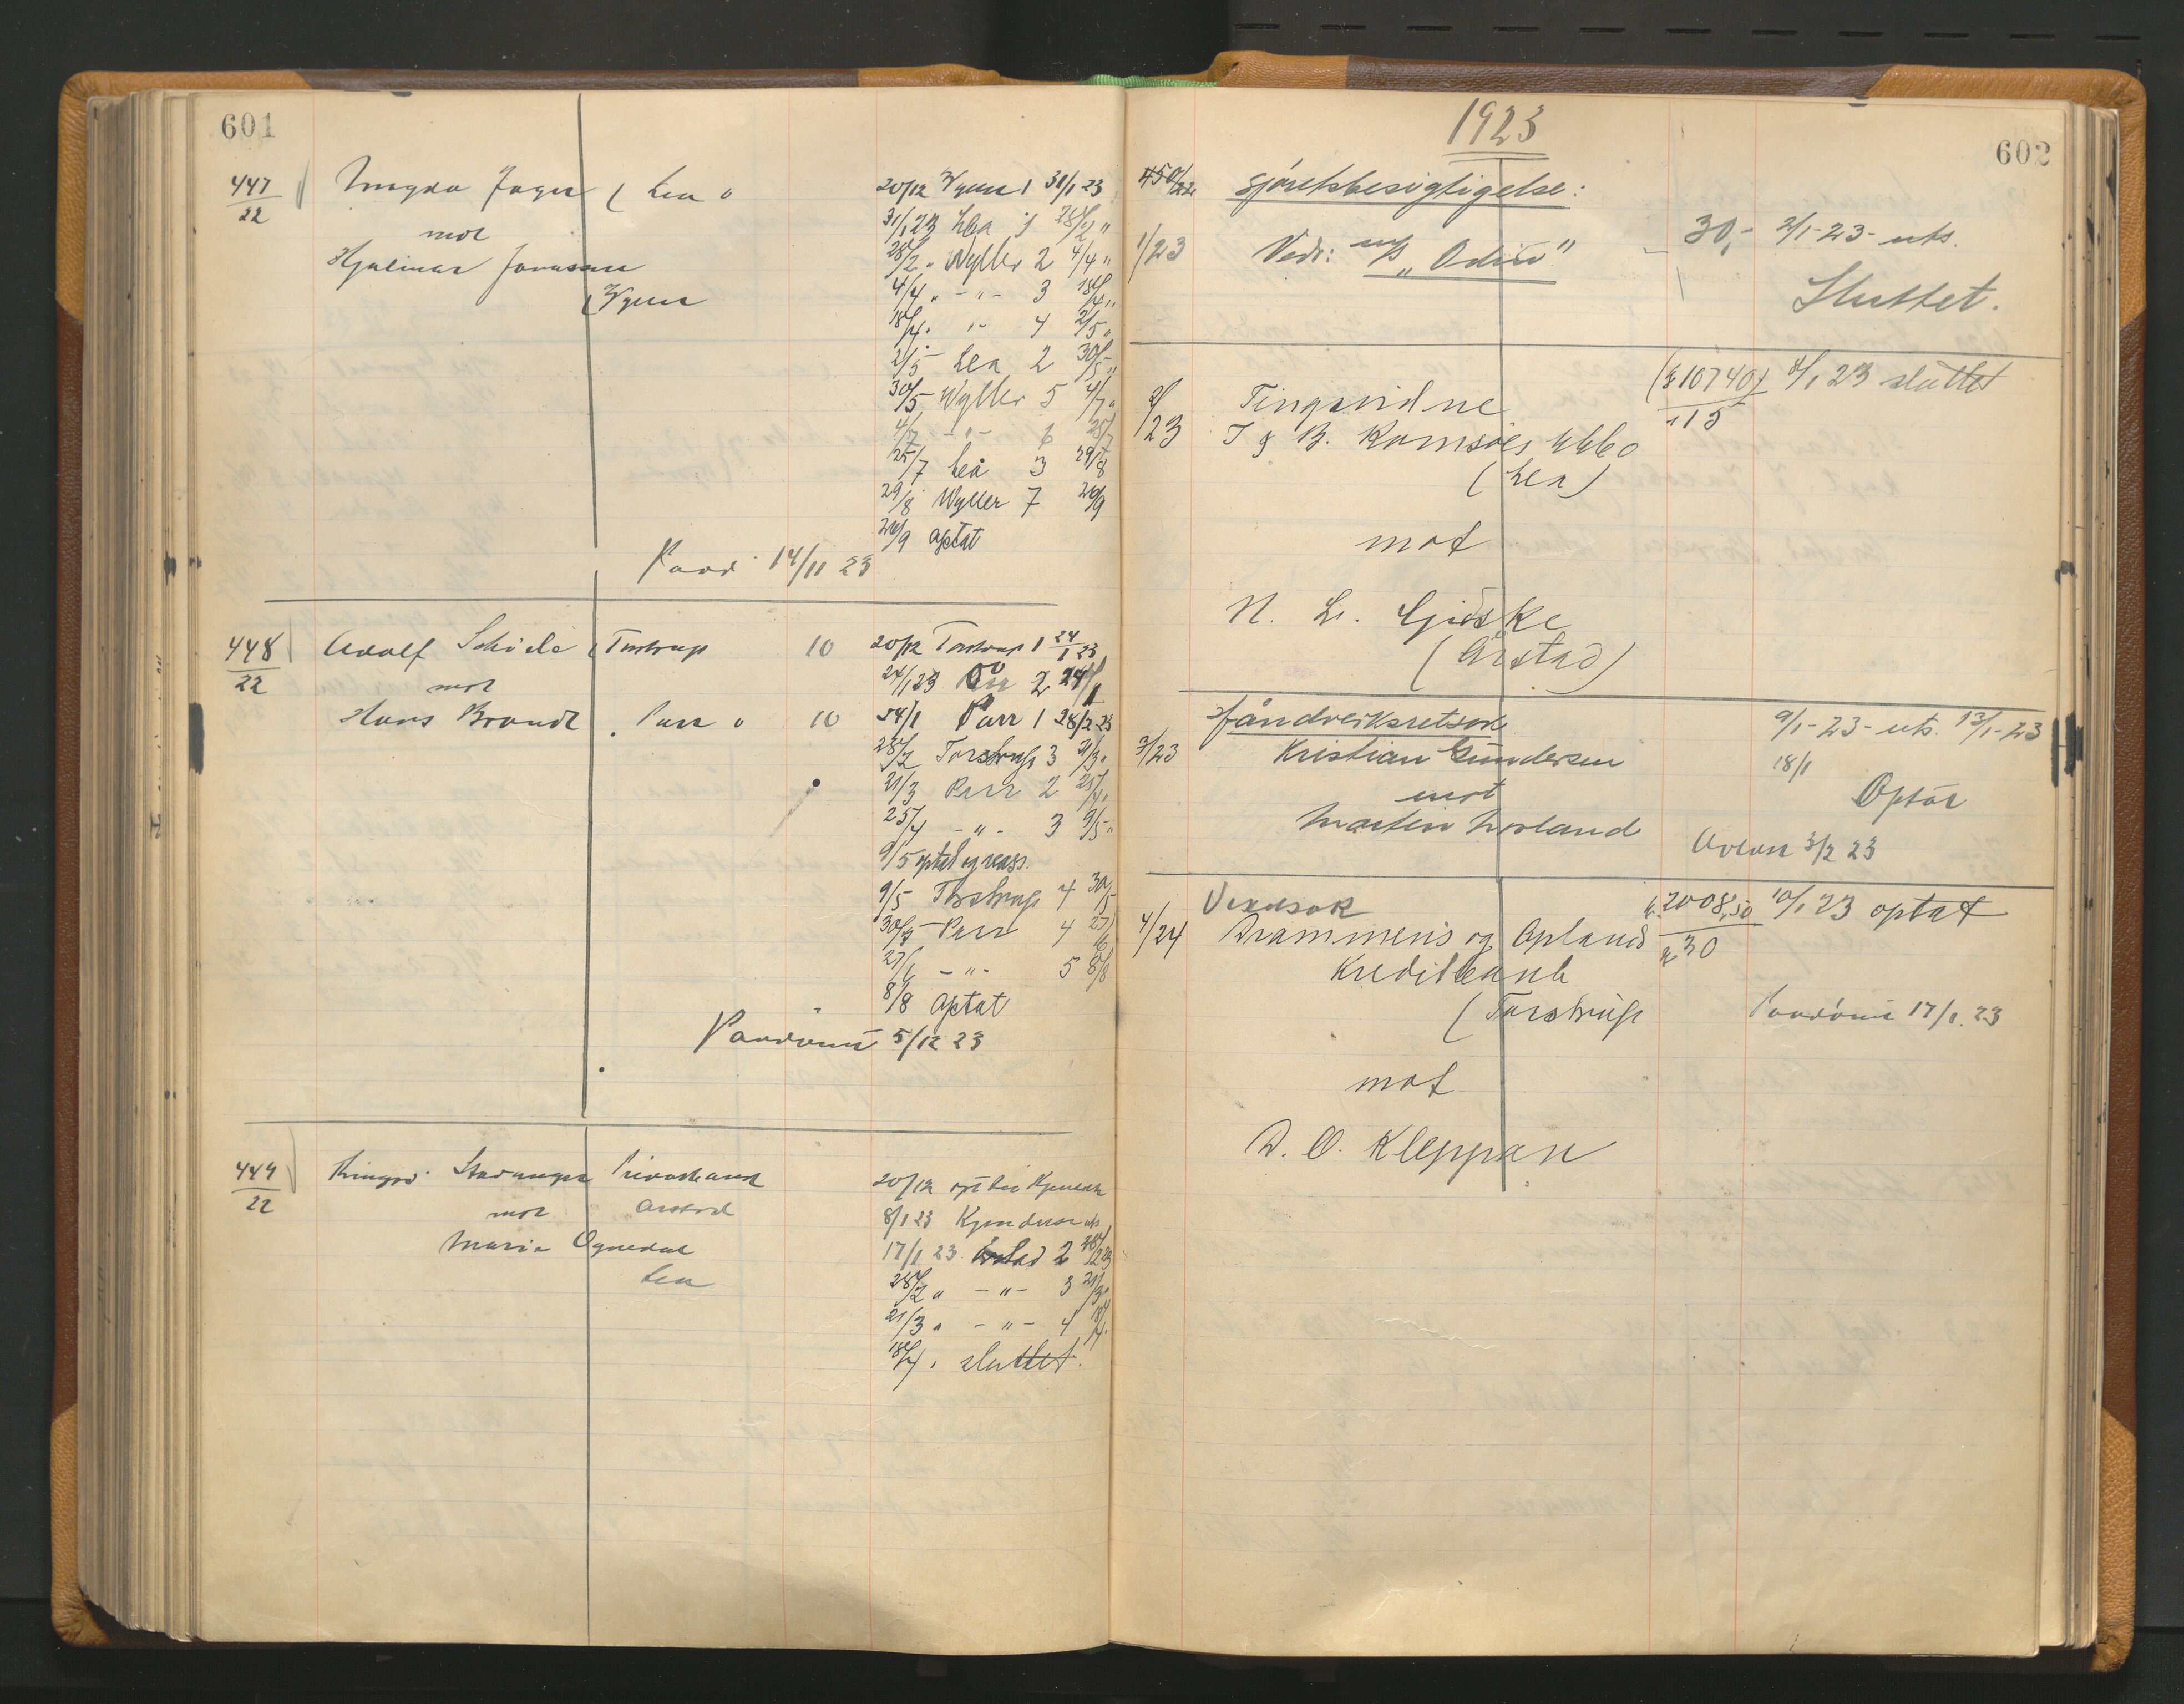 601
447/22 Magda Jager ( Lea
mot
Hjalmar Jonassen
(Wyller
20/12 Wyller 1 31/1 23
31/1 23 Lea 1 28/2 "
28/2 " Wyller 2 4/4 "
4/4 " - " - 3 18/4 "
18/4 " " - 4 2/5 "
2/5 Lea 2 30/5 "
30/5 Wyller 5 4/7 "
4/7 - " - 6 25/7
25/7 Lea 3 29/8
29/8 Wyller 7 26/9
26/9 optat
14/11 23
448/22 Adolf Schiele (Torstrup 10
mot
Hans Brandt . Parr 10
20/12 Torstrup 1 24/1 23
24/1 23 2 24/1
24/1 Parr 1 28/2 23
28/2 Torstrup 3 21/3 "
21/3 Parr 2 25/4 "
25/4 - " - 3 9/5 "
9/5 optat og reass.
9/5 Torstrup 4 30/5
30/5 Parr 4 27/6
27/6 - " - 5 8/8
8/8 optat
5/12 23
449/22 Stavanger Privatbank
mot Arstad
Maria Ognedal
Lea
20/12
8/1 23 uts
17/1 23 Arstad 2 28/2 23
28/2 " - " - 3 21/3 "
21/3 " - " - 4 18/4 "
18/4 " sluttet.
1923
602
450/22 Sjøretsbesigtigelse:
1/23 Vedr: m/s „Odin" 30,- 2/1-23- uts.
Sluttet.
2/23 Tingsvidne (k 10740) /1 23 sluttet
15
T & B. Ramsøes Ebbo
(Lea)
mot
N. L. Gjidske
(Arstad)
Håndverksretsak 9/1-23- uts. 13/1-23
3/23 Kristian Gundersen 18/1
mot Optat
Martin Norland
3/2 23
Vexelsak k. 2008,50 10/1 23 optat
4/24 Drammens og Oplands k 30
Kreditbank
(Torstrup 17/1. 23
mot
D. O. Kleppan